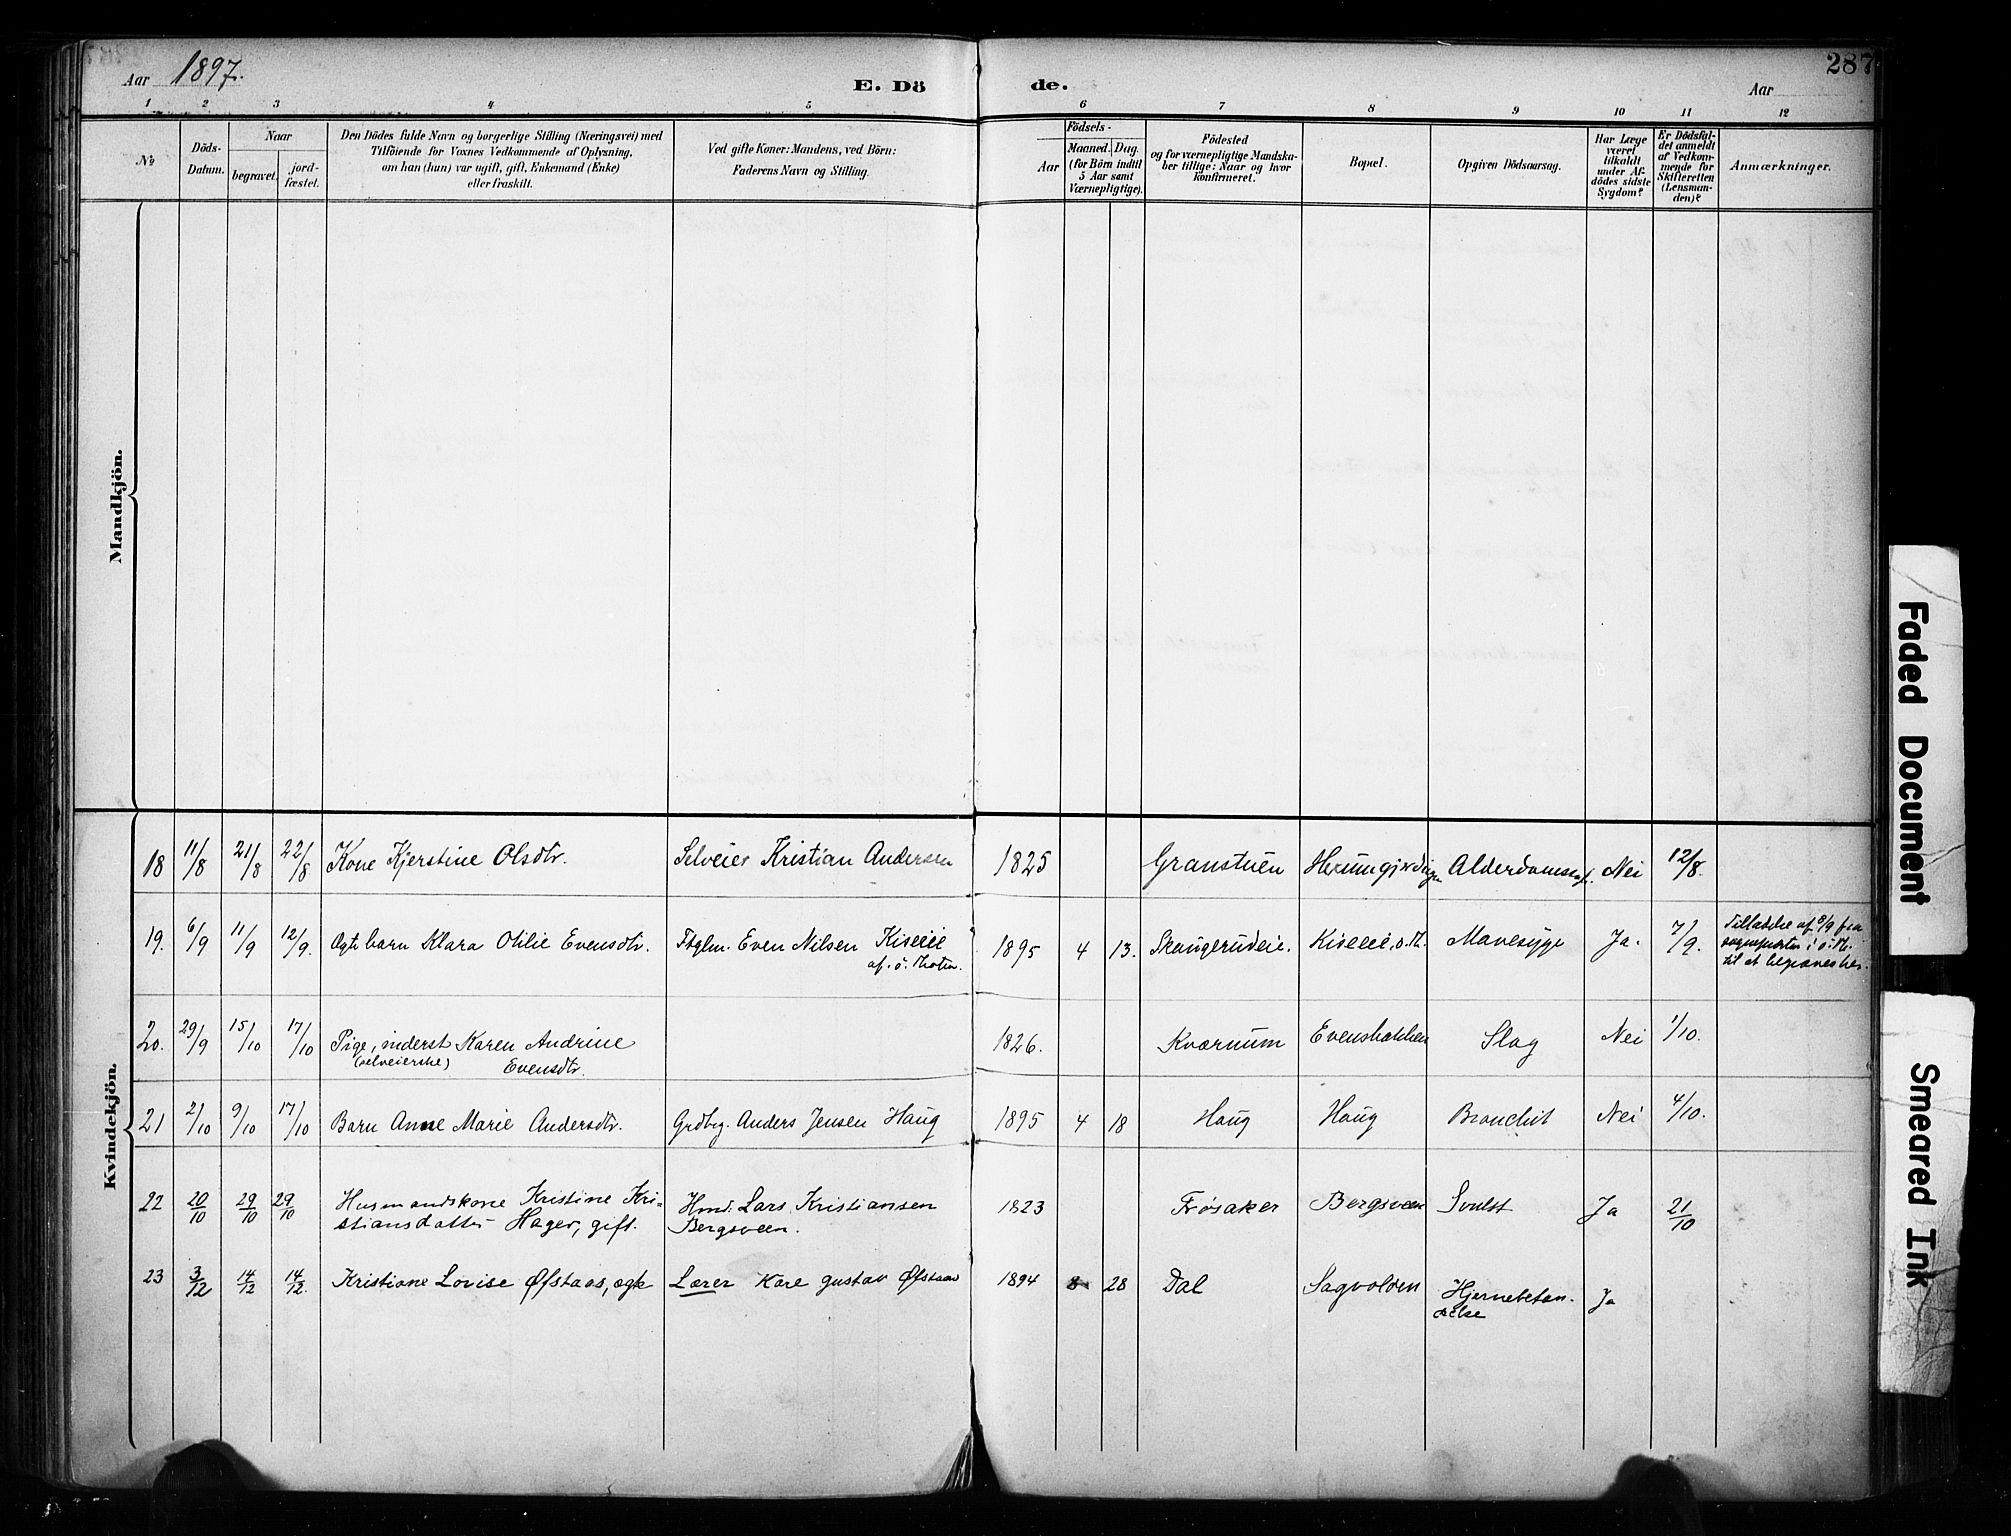 Aar 1897. E. Dö de. Aar 287
1 2 3 4 5 6 7 8 9 10 11 12
No
Döds-Datum.
Naar
begravet.
jord-fæstet.
Den Dödes fulde Navn og borgerlige Stilling (Næringsvei) med
Tilföiende for Voxnes Vedkommende af Oplysning,
om han (hun) var ugift, gift, Enkemand (Enke)
eller fraskilt.
Ved gifte Koner: Mandens, ved Börn:
Faderens Navn og Stilling.
Födsels-
Aar
Maaned. Dag
(for Börn indtil
5 Aar samt
Værnepligtige).
Födested
og for værnepligtige Mandska-
ber tillige: Naar og hvor
konfirmeret.
Bopæl.
Opgiven Dödsaarsag.
Har Læge
været
tilkaldt
under Af-
dödes sidste
Sygdom?
Er Dödsfal-
det anmeldt
af Vedkom-
mende for
Skifteretten
(Lensman-
den)?
Anmærkninger.
Mandkjön.
Kvindekjön.
18 11/8 21/8 22/8 Kone Kjerstine Olsdtr. Selveier Kristian Andersen 1825 Granstuen Alderdomssv. Nei 12/8.
19. 6/9 11/9 12/9. Ægte barn Klara Otilie Evensdtr. Even Nilsen Kiseeie 1895 4 13. Skaugerudeie. Kiseeie, ö.T. Mavesyge Ja. 7/9. Tilladelse af 8/9 fra
af. ö. Thoten.
sognepresten i ö.Th.
til at begraves her.
20. 29/9 15/10 17/10 Pige, inderst Karen Andrine 1826. Kværnum Evensbakken Slag Nei 1/10.
(selveierske) Evensdtr.
21 2/10 9/10 17/10 Barn Anne Marie Andersdtr. Grdbrg. Anders Jensen Haug 1895 4 18 Haug Haug Bronchit Nei 4/10.
22 20/10 29/10 29/10 Husmandskone Kristine Kri- Hmd. Lars Kristiansen 1823 Frøsaker Bergsveen Svulst Ja 21/10
stiansdatter Hager, gift. Bergsveen.
23 3/12 14/12 14/12. Kristiane Lovise Øfstaas, ægte Lærer Kare Gustav Øfstaas 1894 8 28 Dal Sagvolden Hjernebetæn- Ja
delse
Faded Document
Smeared Ink